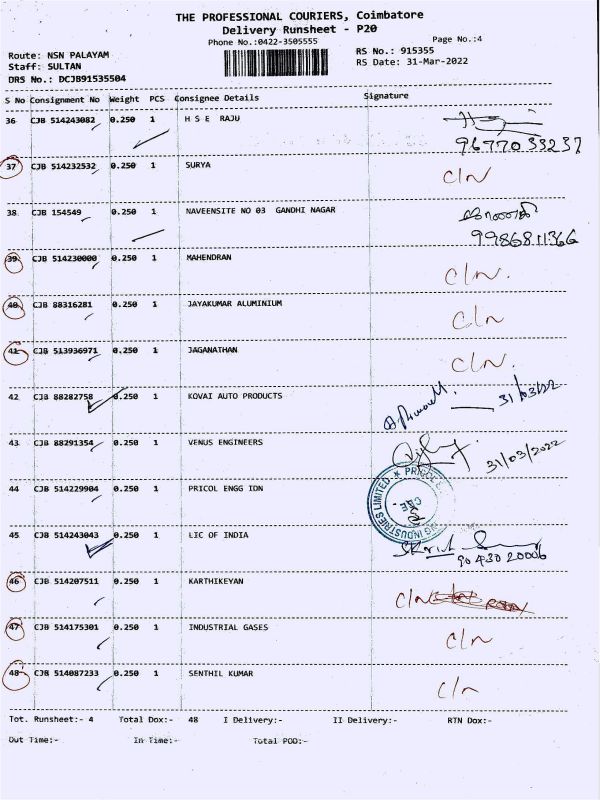 THE PROFESSIONAL COURIERS, Coimbatore
Delivery Runsheet - P20
Phone No.:0422-3505555
Page No.:4
Route: NSN PALAYAM
RS No.: 915355
Staff: SULTAN
RS Date: 31-Mar-2022
DRS No.: DCJB91535504
S No Consignment No Weight PCS Consignee Details Signature
36 CJB 514243082 0.250 1 H S E RAJU
9677033237
37 CJB 514232532 0.250 1 SURYA C/N
38 CJB 154549 0.250 1 NAVEENSITE NO 03 GANDHI NAGAR
9986811366
39 CJB 514230000 0.250 1 MAHENDRAN C/N.
40 CJB 88316281 0.250 1 JAYAKUMAR ALUMINIUM C/N
41 CJB 513936971 0.250 1 JAGANATHAN C/N.
42 CJB 88282758 0.250 1 KOVAI AUTO PRODUCTS 31/03/22
43 CJB 88291354 0.250 1 VENUS ENGINEERS 31/03/2022
44 CJB 514229904 0.250 1 PRICOL ENGG IDN
45 CJB 514243043 0.250 1 LIC OF INDIA
90430 20006
46 CJB 514207511 0.250 1 KARTHIKEYAN C/N
47 CJB 514175301 0.250 1 INDUSTRIAL GASES C/N
48 CJB 514087233 0.250 1 SENTHIL KUMAR C/N
Tot. Runsheet:- 4 Total Dox:- 48 I Delivery:- II Delivery:- RTN Dox:-
Out Time:- In Time:- Total POD:-